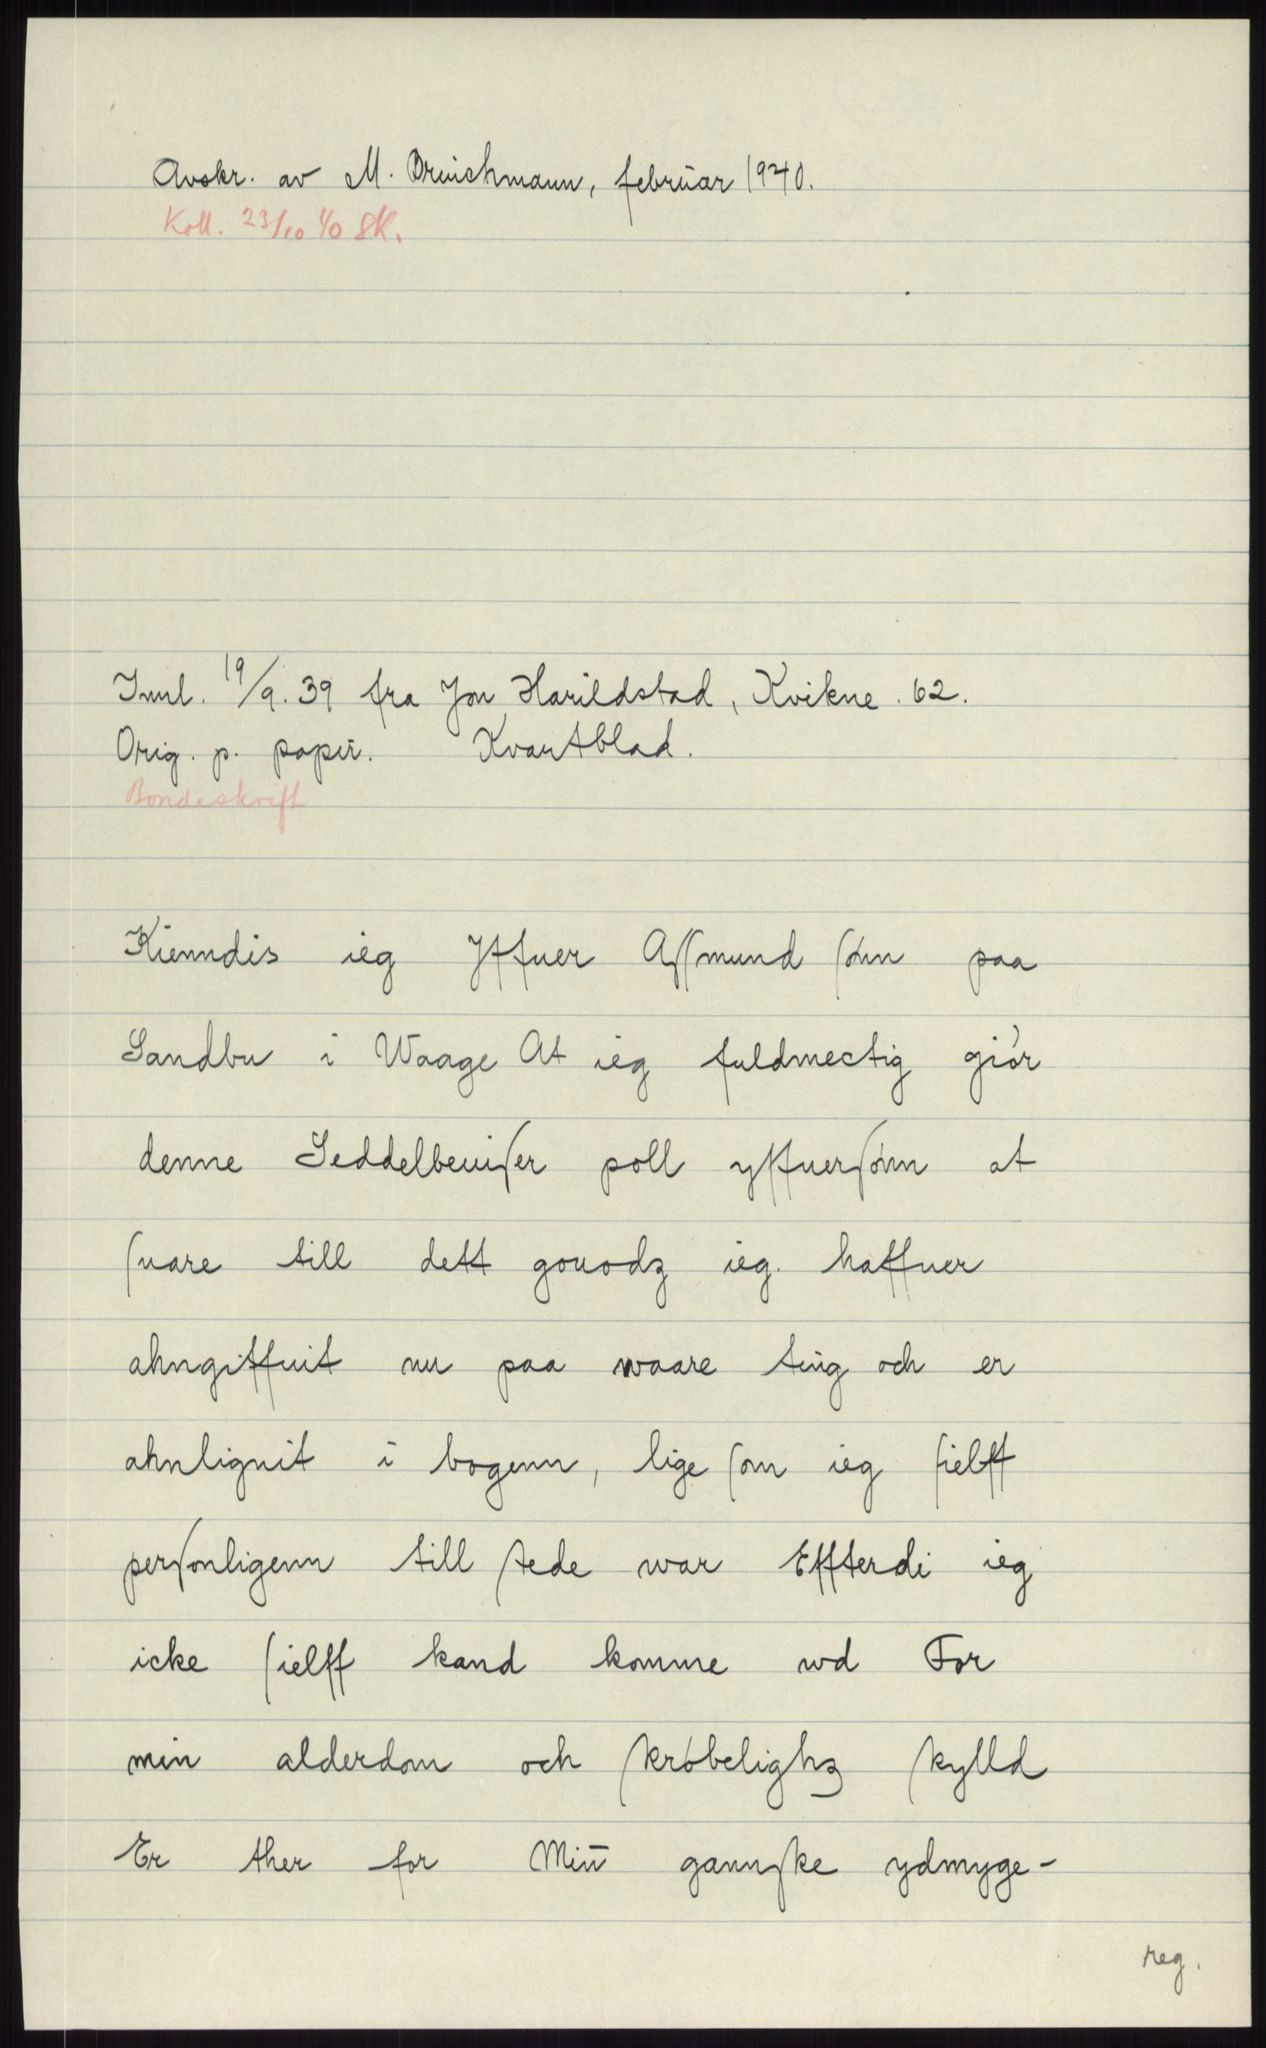 Avskr. av M. Brinchmann, februar 1940.
Koll. 23/10 40 SK.
Innl. 19/9. 39 fra Jon Harildstad, Kvikne. 62.
Orig. p. papir. Kvartblad.
Bondeskrift
Kienndis ieg Yffuer Aſſmund ſønn paa
Sandbu i Waage At ieg fuldmectig giór
denne Seddelbeuiſer poll yffuerſønn at
ſuare till dett gouodz ieg. haffuer
ahngiffuit nu paa waare ting och er
ahnlignit i bogenn, lige ſom ieg ſielff
perſonligenn till ſtede war Effterdi ieg
icke ſielff kand komme wd For
min alderdom och ſkróbelighz ſkylld
Er ther for Min̄ gannſke ydmyge-
reg.